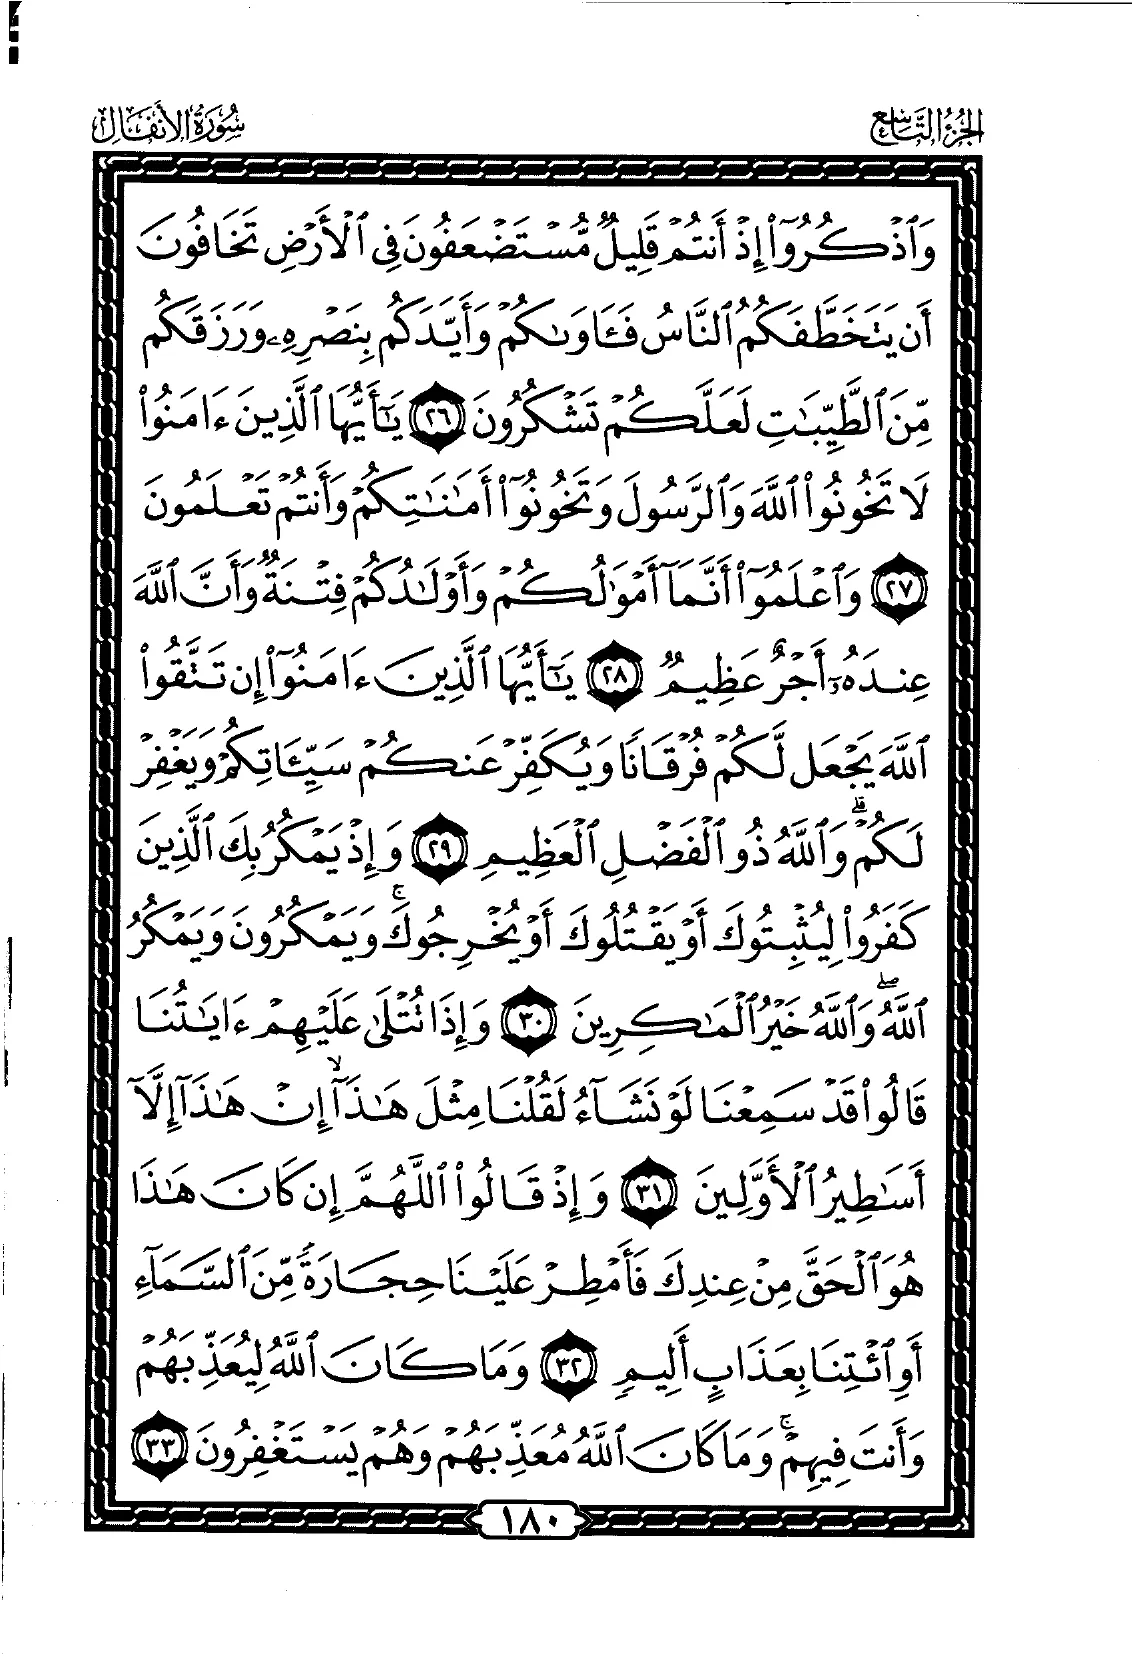 الجزء التاسع
سورة الأنفال
وَٱذۡكُرُوٓاْ إِذۡ أَنتُمۡ قَلِيلٌ مُّسۡتَضۡعَفُونَ فِى ٱلۡأَرۡضِ تَخَافُونَ
أَن يَتَخَطَّفَكُمُ ٱلنَّاسُ فَـَٔاوَىٰكُمۡ وَأَيَّدَكُم بِنَصۡرِهِۦ وَرَزَقَكُم
مِّنَ ٱلطَّيِّبَٰتِ لَعَلَّكُمۡ تَشۡكُرُونَ ٢٦ يَٰٓأَيُّهَا ٱلَّذِينَ ءَامَنُواْ
لَا تَخُونُواْ ٱللَّهَ وَٱلرَّسُولَ وَتَخُونُوٓاْ أَمَٰنَٰتِكُمۡ وَأَنتُمۡ تَعۡلَمُونَ
٢٧ وَٱعۡلَمُوٓاْ أَنَّمَآ أَمۡوَٰلُكُمۡ وَأَوۡلَٰدُكُمۡ فِتۡنَةٌ وَأَنَّ ٱللَّهَ
عِندَهُۥٓ أَجۡرٌ عَظِيمٌ ٢٨ يَٰٓأَيُّهَا ٱلَّذِينَ ءَامَنُوٓاْ إِن تَتَّقُواْ
ٱللَّهَ يَجۡعَل لَّكُمۡ فُرۡقَانًا وَيُكَفِّرۡ عَنكُمۡ سَيِّـَٔاتِكُمۡ وَيَغۡفِرۡ
لَكُمۡۗ وَٱللَّهُ ذُو ٱلۡفَضۡلِ ٱلۡعَظِيمِ ٢٩ وَإِذۡ يَمۡكُرُ بِكَ ٱلَّذِينَ
كَفَرُواْ لِيُثۡبِتُوكَ أَوۡ يَقۡتُلُوكَ أَوۡ يُخۡرِجُوكَۚ وَيَمۡكُرُونَ وَيَمۡكُرُ
ٱللَّهُۖ وَٱللَّهُ خَيۡرُ ٱلۡمَٰكِرِينَ ٣٠ وَإِذَا تُتۡلَىٰ عَلَيۡهِمۡ ءَايَٰتُنَا
قَالُواْ قَدۡ سَمِعۡنَا لَوۡ نَشَآءُ لَقُلۡنَا مِثۡلَ هَٰذَآۙ إِنۡ هَٰذَآ إِلَّآ
أَسَٰطِيرُ ٱلۡأَوَّلِينَ ٣١ وَإِذۡ قَالُواْ ٱللَّهُمَّ إِن كَانَ هَٰذَا
هُوَ ٱلۡحَقَّ مِنۡ عِندِكَ فَأَمۡطِرۡ عَلَيۡنَا حِجَارَةً مِّنَ ٱلسَّمَآءِ
أَوِ ٱئۡتِنَا بِعَذَابٍ أَلِيمٍ ٣٢ وَمَا كَانَ ٱللَّهُ لِيُعَذِّبَهُمۡ
وَأَنتَ فِيهِمۡۚ وَمَا كَانَ ٱللَّهُ مُعَذِّبَهُمۡ وَهُمۡ يَسۡتَغۡفِرُونَ ٣٣
١٨٠